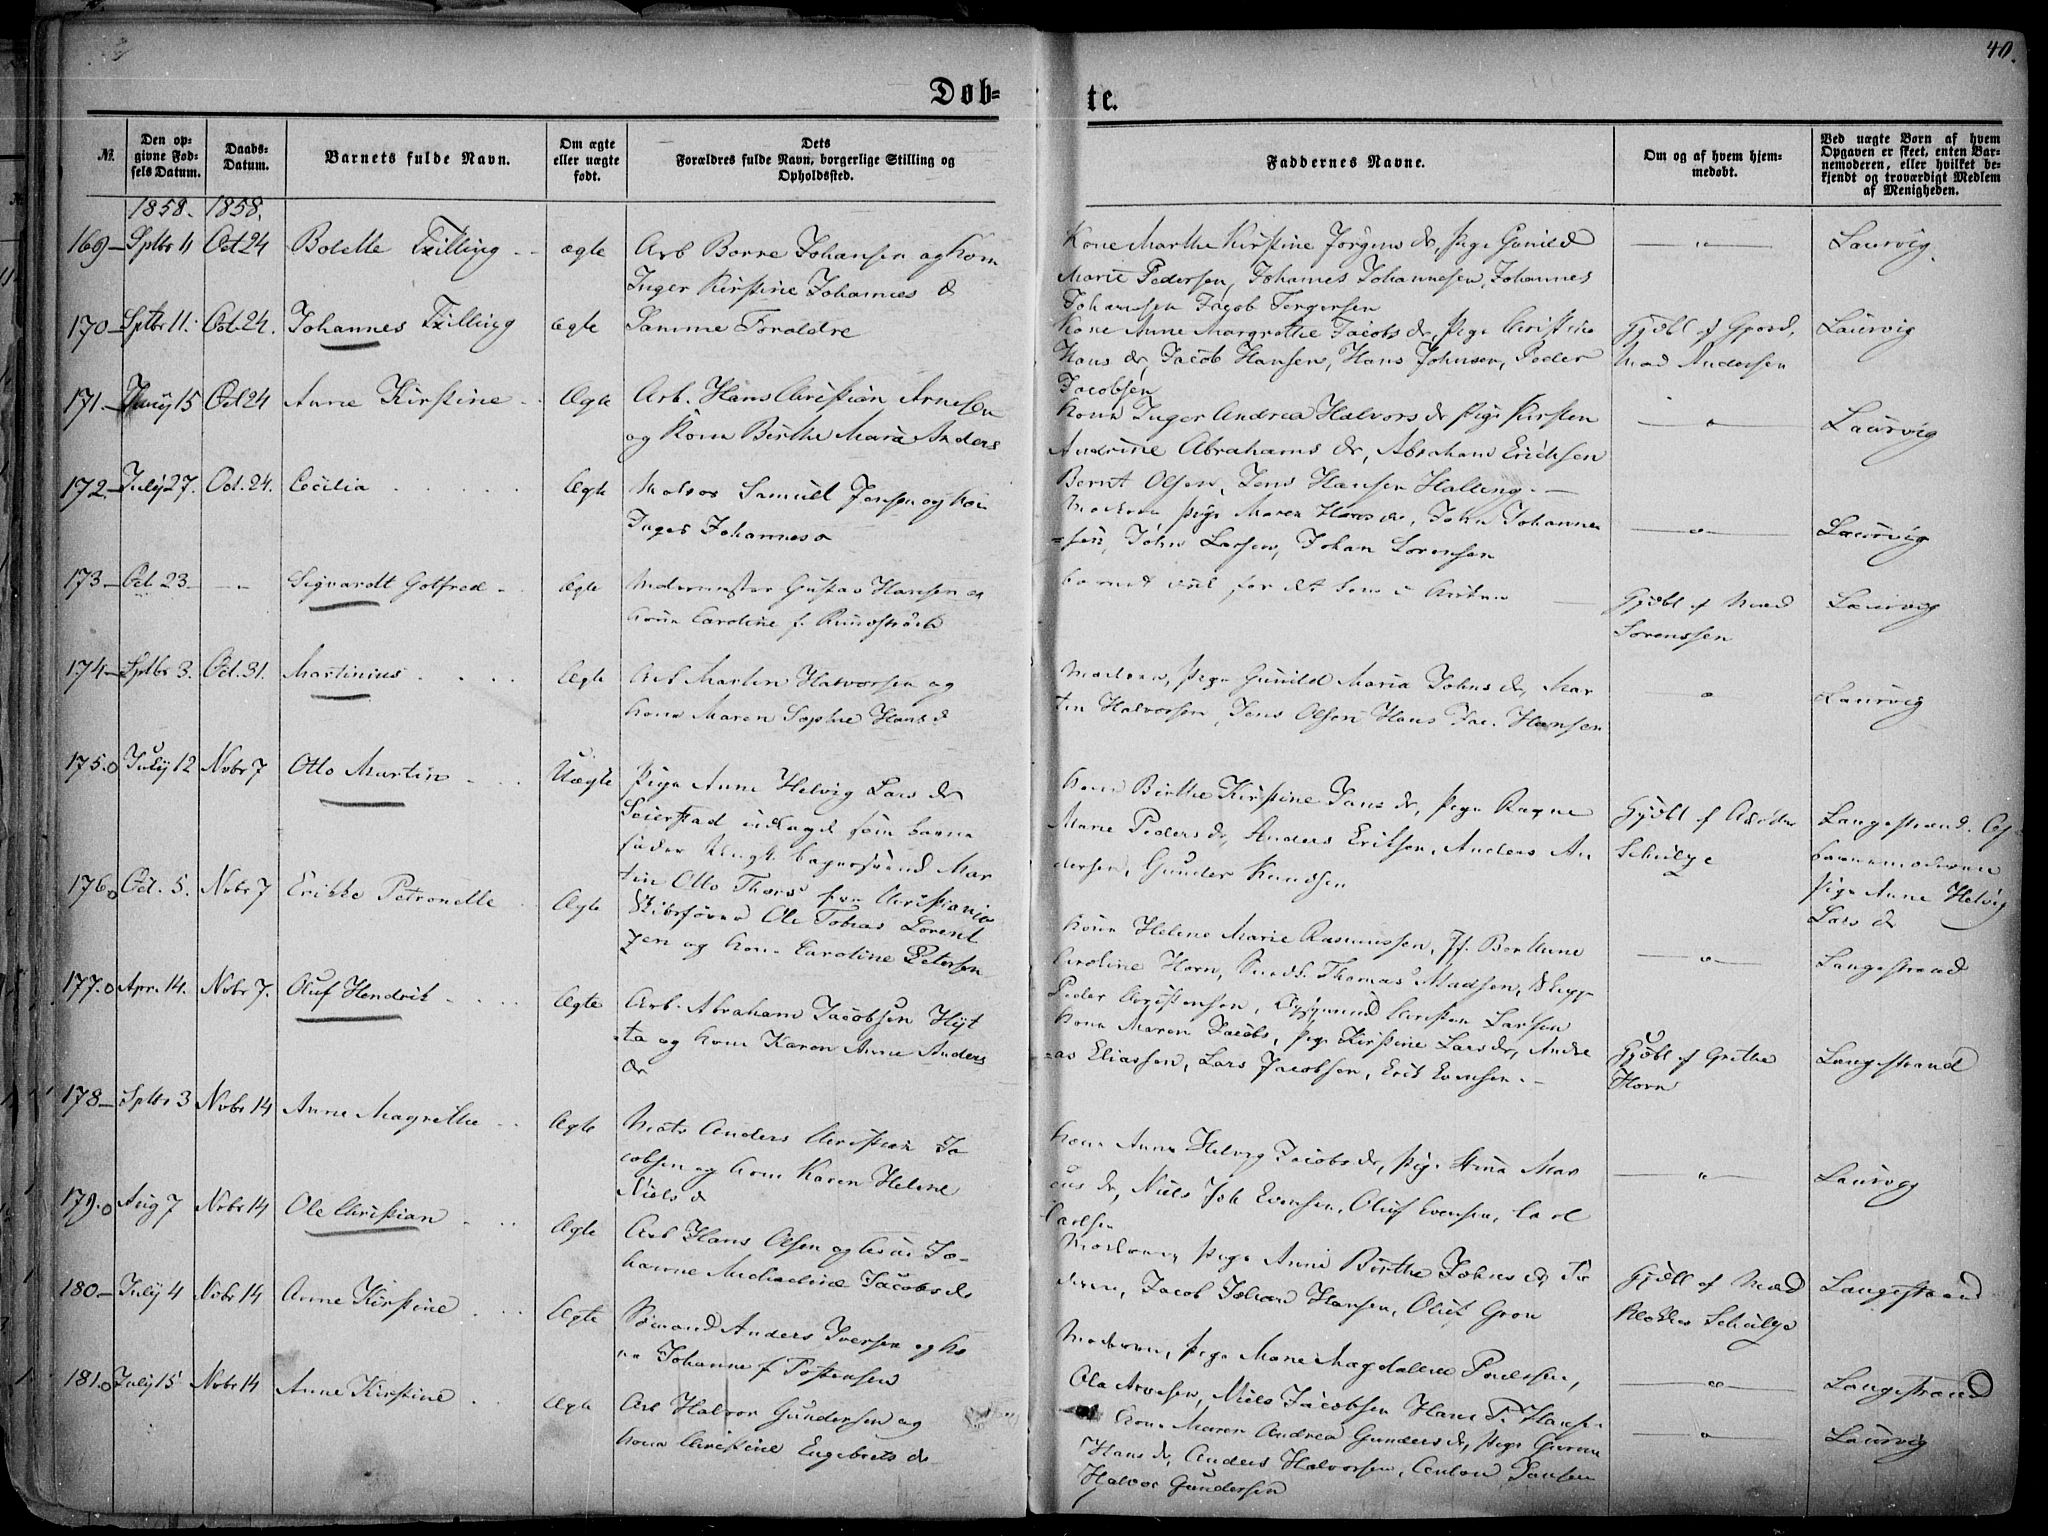 40.
Døb=
te.
№
Den op-
givne Fød-
sels Datum.
Daabs-
Datum.
Barnets fulde Navn.
Om ægte
eller uægte
født.
Dets
Forældres fulde Navn, borgerlige Stilling og
Opholdssted.
Faddernes Navne.
Om og af hvem hjem-
medøbt.
Ved uægte Børn af hvem
Opgaven er skeet, enten Bar-
nemoderen, eller hvilket be-
kjendt og troværdigt Medlem
af Menigheden.
1858. 1858.
169 – Sptbr 11 Oct 24 Bolette Tvilling ægte
Arb Borre Johansen og Kone
Inger Kirstine Johannes d
Kone Marthe Kirstine Jørgens dr, Pige Gunild
Marie Pedersen, Johannes Johannesen, Johannes
Johansen Jacob Torgersen
Laurvig
170 – Sptbr 11. Oct. 24. Johannes Tvilling ægte
Samme Foraldre
Kone Anne Margrethe Jacobs dr, Pige Christine
Hans dr, Jacob Hansen, Hans Johnsen, Peder
Jacobsen
Gjdbt af
Mad Andersen
Laurvig
171 – Juny 15 Oct 24 Anne Kirstine Ægte
Arb. Hans Christian Arnesen
og Kone Birthe Maria Anders
Kone Inger Andrea Halvors dr Pige Kirsten
Andrine Abrahams dr, Abraham Ericksen
Bernt Olsen, Jens Hansen Halling.
Laurvig
172. – July 27. Oct. 24. Cecilia Ægte
Matros Samuel Jensen og Kone
Inger Johannes d
Moderen Pige Maren Hans dr, John Johanne
=sen, John Larsen, Johan Sørensen
Laurvig
173 – Oct 23 – Sigvardt Gotfred Ægte
Gustav Hansen og
Kone Caroline f.
Gjdbt af Mad
Sorenssen
Laurvig
174 – Sptbr 3. Oct. 31. Martinius Ægte
Arb Martin Halvorsen og
Kone Maren Sophie Hans d
Moderen, Pige Gunild Maria Johns dr, Mar
tin Halvorsen, Jens Olsen Hans Jac. Hansen
Laurvig
175. July 12 Nvbr 7 Otto Martin Uægte
Pige Anne Helvig Lars dr
Seierstad udlagt som barne
fader Ungk. bagersvend Mar
tin Otto fra Christiania
Kone Birthe Kirstine Jans dr, Pige Ragne
Marie Peders dr, Anders Eriksen, Anders An
dersen, Gunder Knudsen
Gjdbt af
Schulze
Langestrand. Af
barnemoderen
Pige Anne Helvig
Lars d
176 Oct. 5. Nvbr 7 Erikke Petronelle Ægte
Skibsfører Ole Tobias Lorent
zen og Kone Caroline Petersen
Kone Helene Marie Rasmussen, Jf. Berthine
Caroline Horn, Thomas Madsen,
Peder Christensen, Christen Larsen
Langestrand
177. Apr. 14. Nvbr 7. Oluf Hendrik Ægte
Arb. Abraham Jacobsen Hyt
ta og Kone Karen Anne Anders
dr
Kone Maren Jacobs, Pige Kirstine Lars dr, Andre
=as Eliassen, Lars Jacobsen, Erik Evensen. –
Gjdbt af Grethe
Horn
Langestrand
178 – Sptbr 3 Nvbr 14 Anne Magrethe Ægte
Mats Anders Christian Ja
cobsen og Kone Karen Helene
Niels d
Kone Anne Helvig Jacobs dr, Pige Stina Mar
cus dr, Niels Joh Evensen, Oluf Evensen, Carl
Carlsen
Laurvig
179. Aug 7 Nvbr 14 Ole Christian Ægte
Arb Hans Olsen og Kone Jo-
hanne Michaeline Jacobs dr
Moderen, Pige Anne Birthe Johns dr,
Jacob Johan Hansen, Oluf Gron
Gjdbt af Mad
Klokker Schulze
Langestrand
180 – July 4 Nvbr 14 Anne Kirstine Ægte
Sømand Anders Iversen og Ko
ne Johanne f Tostensen
Moderen, Pige Marie Magdalene Poulssen,
Ole Arnesen, Niels Jacobsen Hans T. Hansen
Langestrand
181. July 15 Nvbr 14 Anne Kirstine Ægte
Arb Halvor Gundersen og
Kone Christine Engebrets dr
Kone Maren Andrea Gunders dr, Pige Gurine
Hans dr, Anders Halvorsen, Anton Jansen
Halvor Gundersen
Laurvig